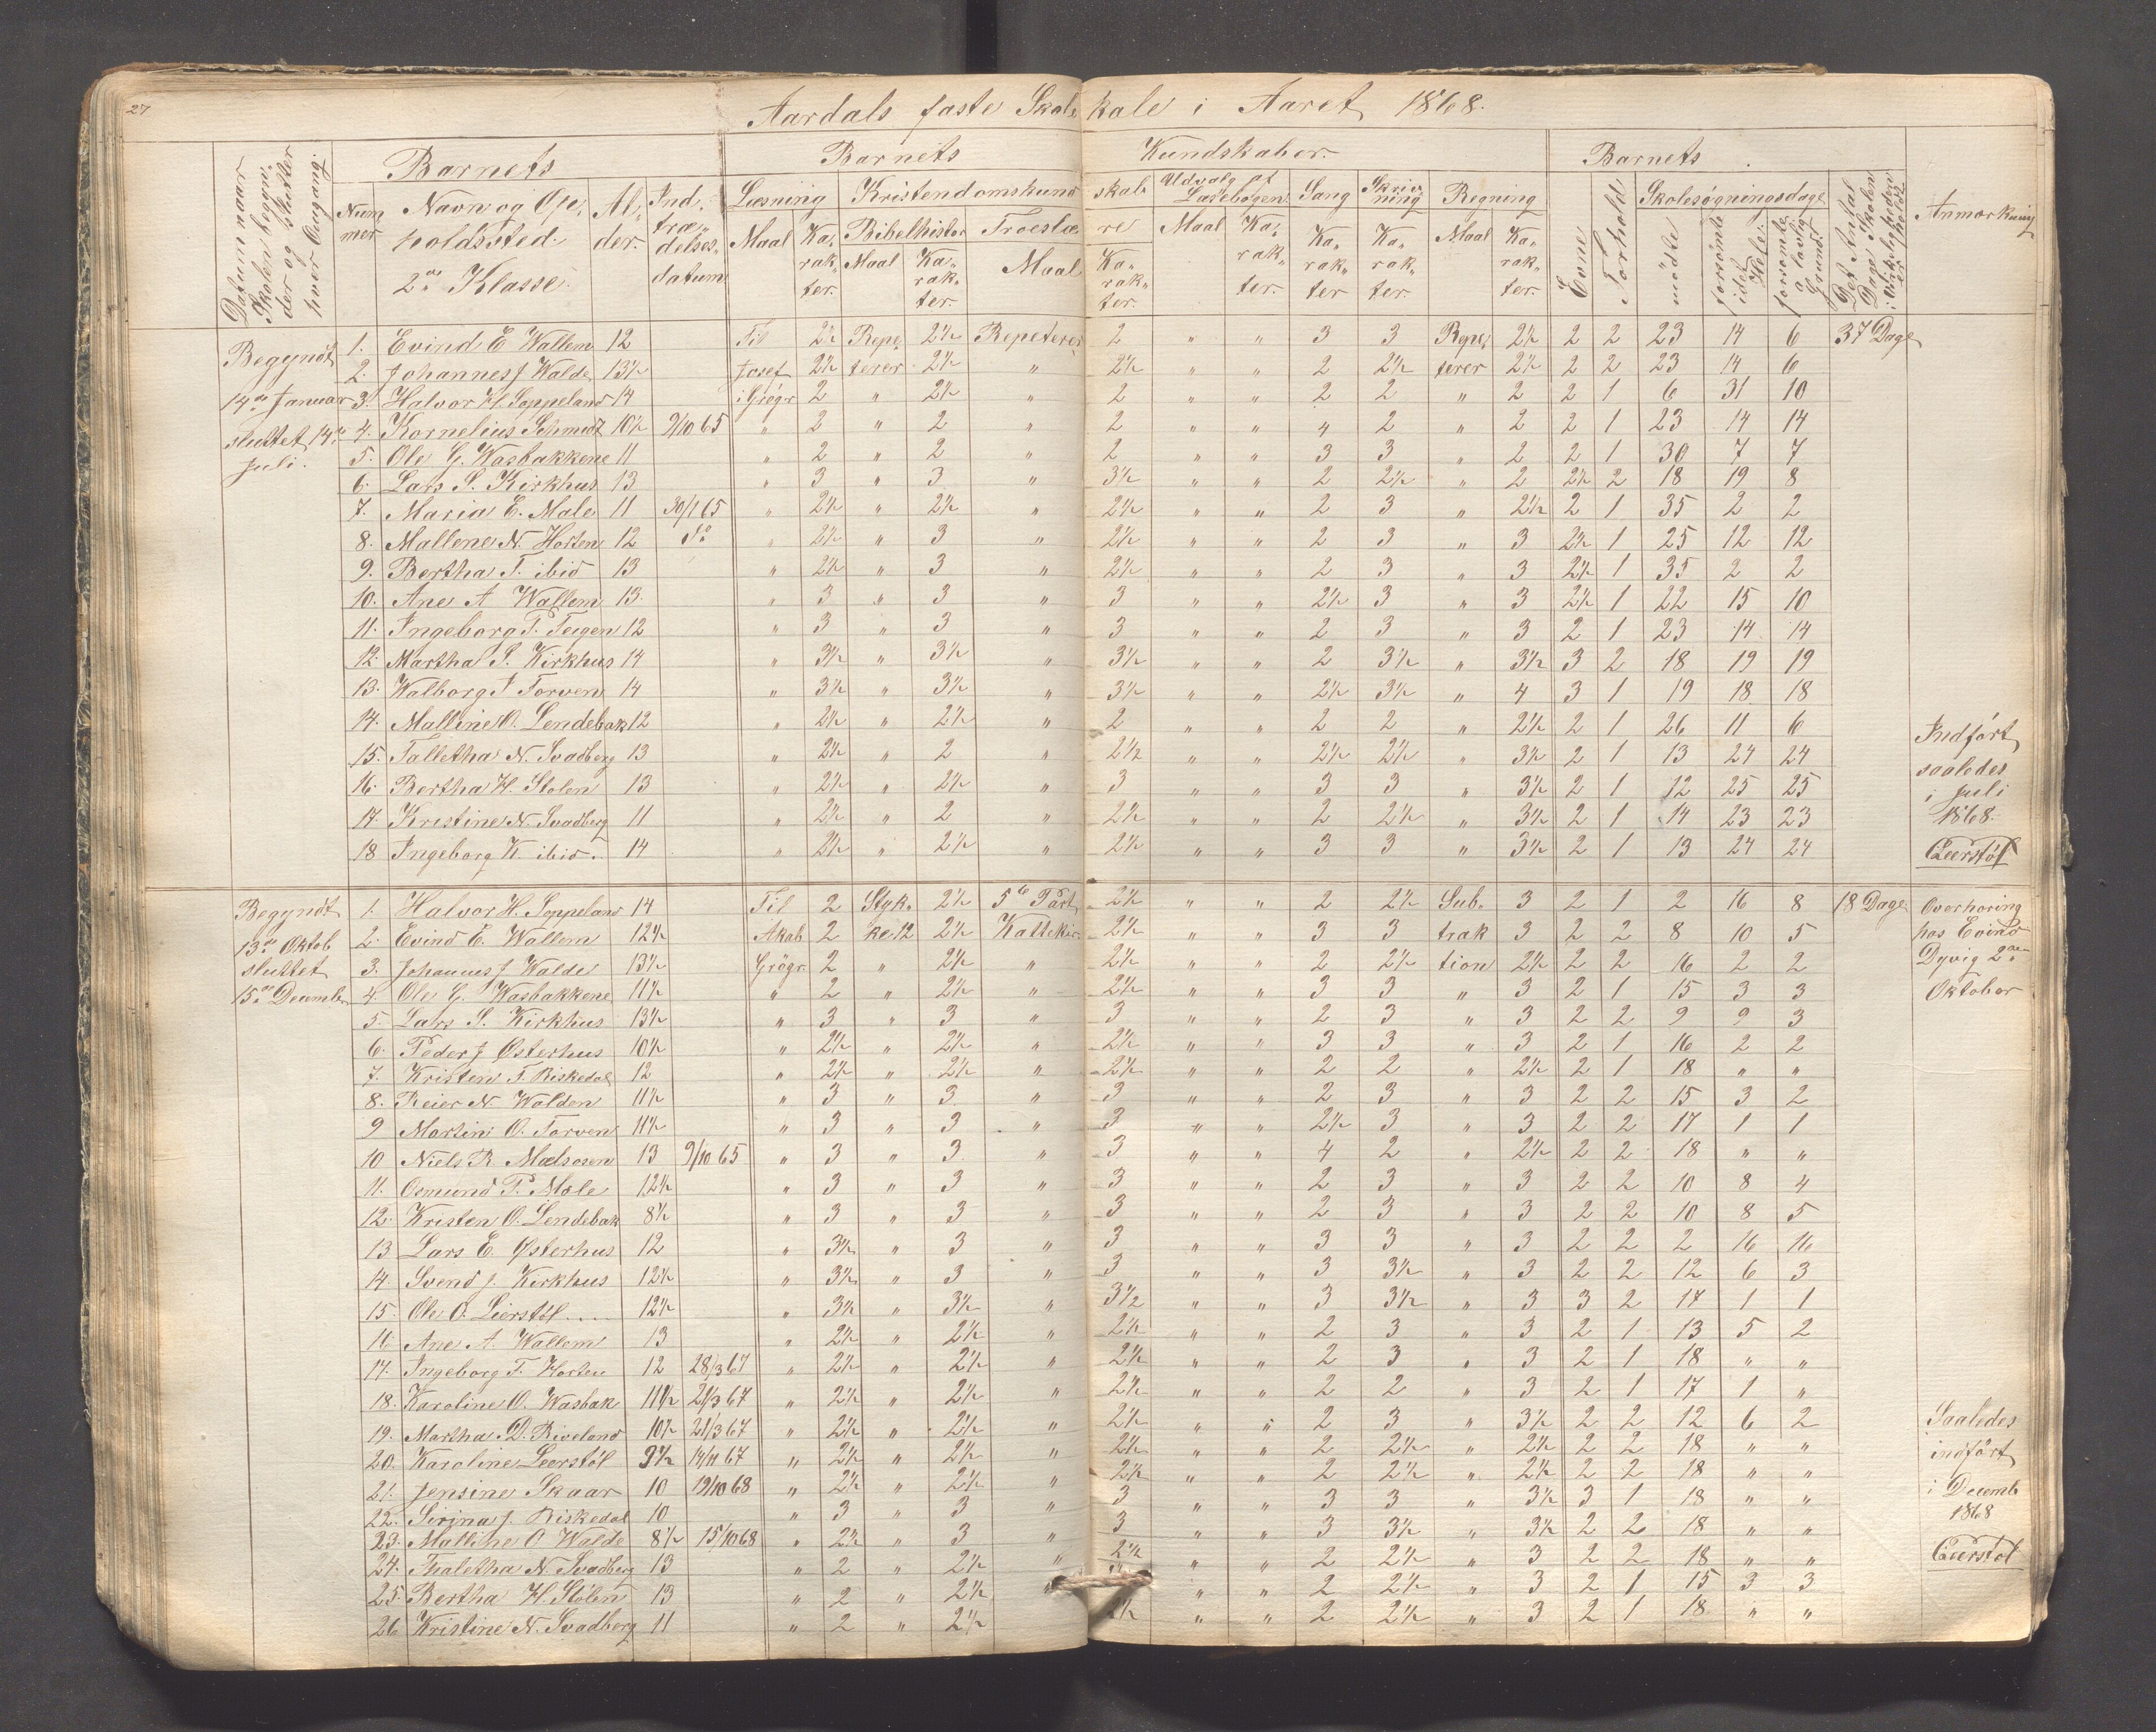 27
Aardals faste Skole kale i Aaret 1868.
Barnets Barnets Kundskaber. Barnets
Datum naar Skolen begynder og slutter hver Omgang.
Nummer
Navn og Opholdssted.
2den Klasse.
Alder.
Indtrædelsesdatum
Læsning Maal Karakter.
Kristendomskundskab Bibelhistor Maal Karakter. Troeslære Maal Karakter.
Udvalg af Læsebogen Maal Karakter.
Sang Karakter
Skrivning Karakter.
Regning Maal Karakter.
Evne
Forhold
Skolesøgningsdage mödte forsömte i det Hele. forsömte a lovlig Grund.
Det Antal Dage Skolen i Virkeligheden er holdt
Anmærkning
Begyndt 14de Januar sluttet 14de Juli.
1. Evind E Wallem 12 Til 2½ Repe- 2½ Repeterer 2 " " 3 3 Repe- 2½ 2 2 23 14 6 37 Dage
2. Johannes J Walde 13½ Josef 2½ terer 2½ " 2½ " " 2 2½ terer 2½ 2 2 23 14 6
3. Halvor H. Soppeland 14 i Grög. 2 " 2½ " 2 " " 2 2 " 2 2 1 6 31 10
4. Kornelius Schmidt 10½ 9/10 65 " 2 " 2 " 2 " " 4 2 " 2 2 1 23 14 14
5. Ole G. Wasbakkene 11 " 2 " 2 " 2 " " 3 3 " 2 2 1 30 7 7
6. Lars S. Kirkhus 13 " 3 " 3 " 3½ " " 2 2½ " 2 2½ 2 18 19 8
7. Maria E. Male 11 30/1 65 " 2½ " 2½ " 2½ " " 2 3 " 2½ 2 1 35 2 2
8. Mallene N. Horten 12 do " 2½ " 3 " 2½ " " 2 3 " 3 2½ 1 25 12 12
9. Bertha T. ibid 13 " 2½ " 3 " 2½ " " 2 3 " 3 2½ 1 35 2 2
10. Ane A Wallem 13. " 3 " 3 " 3 " " 2½ 3 " 3 2½ 1 22 15 10
11. Ingeborg P. Teigen 12 " 3 " 3 " 3 " " 2 3 " 3 2 1 23 14 14
12. Martha S. Kirkhus 14 " 3½ " 3½ " 3½ " " 2 3½ " 3½ 3 2 18 19 19
13. Walborg J Torven 14 " 3½ " 3½ " 3½ " " 2½ 3½ " 4 3 1 19 18 18
14. Malline O. Lendebak 12 " 2½ " 2½ " 2 " " 2 2 " 2½ 2 1 26 11 6
15. Talletha N. Svadberg 13 " 2½ " 2 " 2½ " " 2½ 2½ " 3½ 2 1 13 24 24
16. Bertha H. Stolen 13 " 2½ " 2½ " 3 " " 3 3 " 3½ 2 1 12 25 25
17. Kristine N. Svadberg 11 " 2½ " 2 " 2½ " " 2 2½ " 3½ 2 1 14 23 23
18 Ingeborg K. ibid. 14 " 2½ " 2½ " 2½ " " 3 3 " 3½ 2 1 13 24 24
Indfört
saaledes
i Juli
1868.
Leerstöl
Begyndt 13de Oktob sluttet 15de December
1. Halvor H. Soppeland 14 Til 2 Styk- 2½ 5te Part 2½ " " 2 2½ Sub- 3 2 1 2 16 8 18 Dage
2. Evind E. Wallem 12½ Akab 2 ke 12 2½ Kattekis. 2½ " " 3 3 trak 3 2 2 8 10 5
3. Johannes J Walde 13½ Grögr. 2 " 2½ " 2½ " " 2 2½ tion 2½ 2 2 16 2 2
4. Ole G. Wasbakkene 11½ " 2 " 2½ " 2½ " " 3 3 " 3 2 1 15 3 3
5. Lars S. Kirkhus 13½ " 3 " 3 " 3 " " 2 3 " 3 2 2 9 9 3
6. Peder J Osterhus 10½ " 2½ " 2½ " 2½ " " 3 3 " 3 2 1 16 2 2
7. Kristen T. Riskedal 12 " 2½ " 2½ " 2½ " " 2 2 " 2½ 2 1 18 " "
8. Reier N. Walden 11½ " 3 " 3 " 3 " " 2 3 " 3 2 2 15 3 2
9 Martin O. Torven 11½ " 3 " 3 " 3 " " 2½ 3 " 3 2 2 17 1 1
10 Niels R. Mælsosen 13 9/10 65 " 3 " 3 " 3 " " 4 2 " 2½ 2 2 18 " "
11. Osmund P. Mole 12½ " 3 " 3 " 3 " " 2 3 " 3 2 2 10 8 4
12. Kristen O. Lendebak 8½ " 3 " 3 " 3 " " 2 3 " 3 2 2 10 8 5
13 Lars E. Østerhus 12 " 3½ " 3 " 3 " " 3 3 " 3 2 2 2 16 16
14. Svend J. Kirkhus 12½ " 3½ " 3 " 3 " " 3 3½ " 3 2 2 12 6 3
15. Ole O. Leerstöl 12½ " 3½ " 3½ " 3½ " " 3 3½ " 3 3 2 17 1 1
16 Ane A. Wallem 13 " 2½ " 2½ " 2½ " " 2 3 " 3 2 1 13 5 2
17. Ingeborg T. Horten 12 28/3 67 " 2½ " 2½ " 2½ " " 2 3 " 3 2 1 18 " "
18. Karoline O. Wasbak 11½ 21/3 67 " 2½ " 2½ " 2½ " " 2 2 " 3 2 1 17 1 "
19. Martha D. Riveland 10½ 21/3 67 " 2½ " 2½ " 2½ " " 2 3 " 3½ 2 2 12 6 2
20. Karoline Leerstöl 9½ 14/11 67 " 2½ " 2½ " 2½ " " 2 2½ " 2½ 2 2 18 " "
21. Jensine Skaar 10 19/10 68 " 2½ " 2½ " 2½ " " 2 2½ " 2½ 2 2 18 " "
22. Sirina J. Riskedal 10 " 3 " 3 " 3 " " 3 3 " 3½ 3 1 18 " "
23. Malline O Walde 8½ 15/10 68 " 2½ " 3 " 3 " " 3 3½ " 3½ 2 2 18 " "
24. Thaletha N. Svadberg 13 " 2 " 2½ " 2½ " " 2 2½ " 3 2 2 18 " "
25. Bertha H. Stölen 13 " 2 " 2½ " " " 2 2½ " 3 2 1 15 3 3
26 Kristine N. Svadberg 11 " 2 " 2½ 2½ " " 2 2½ " 3 2 1 18 " "
Overhøring
hos Evind
Dyvig 2den
Oktober
Saaledes
indfört
i Decemb
1868
Leerstöl